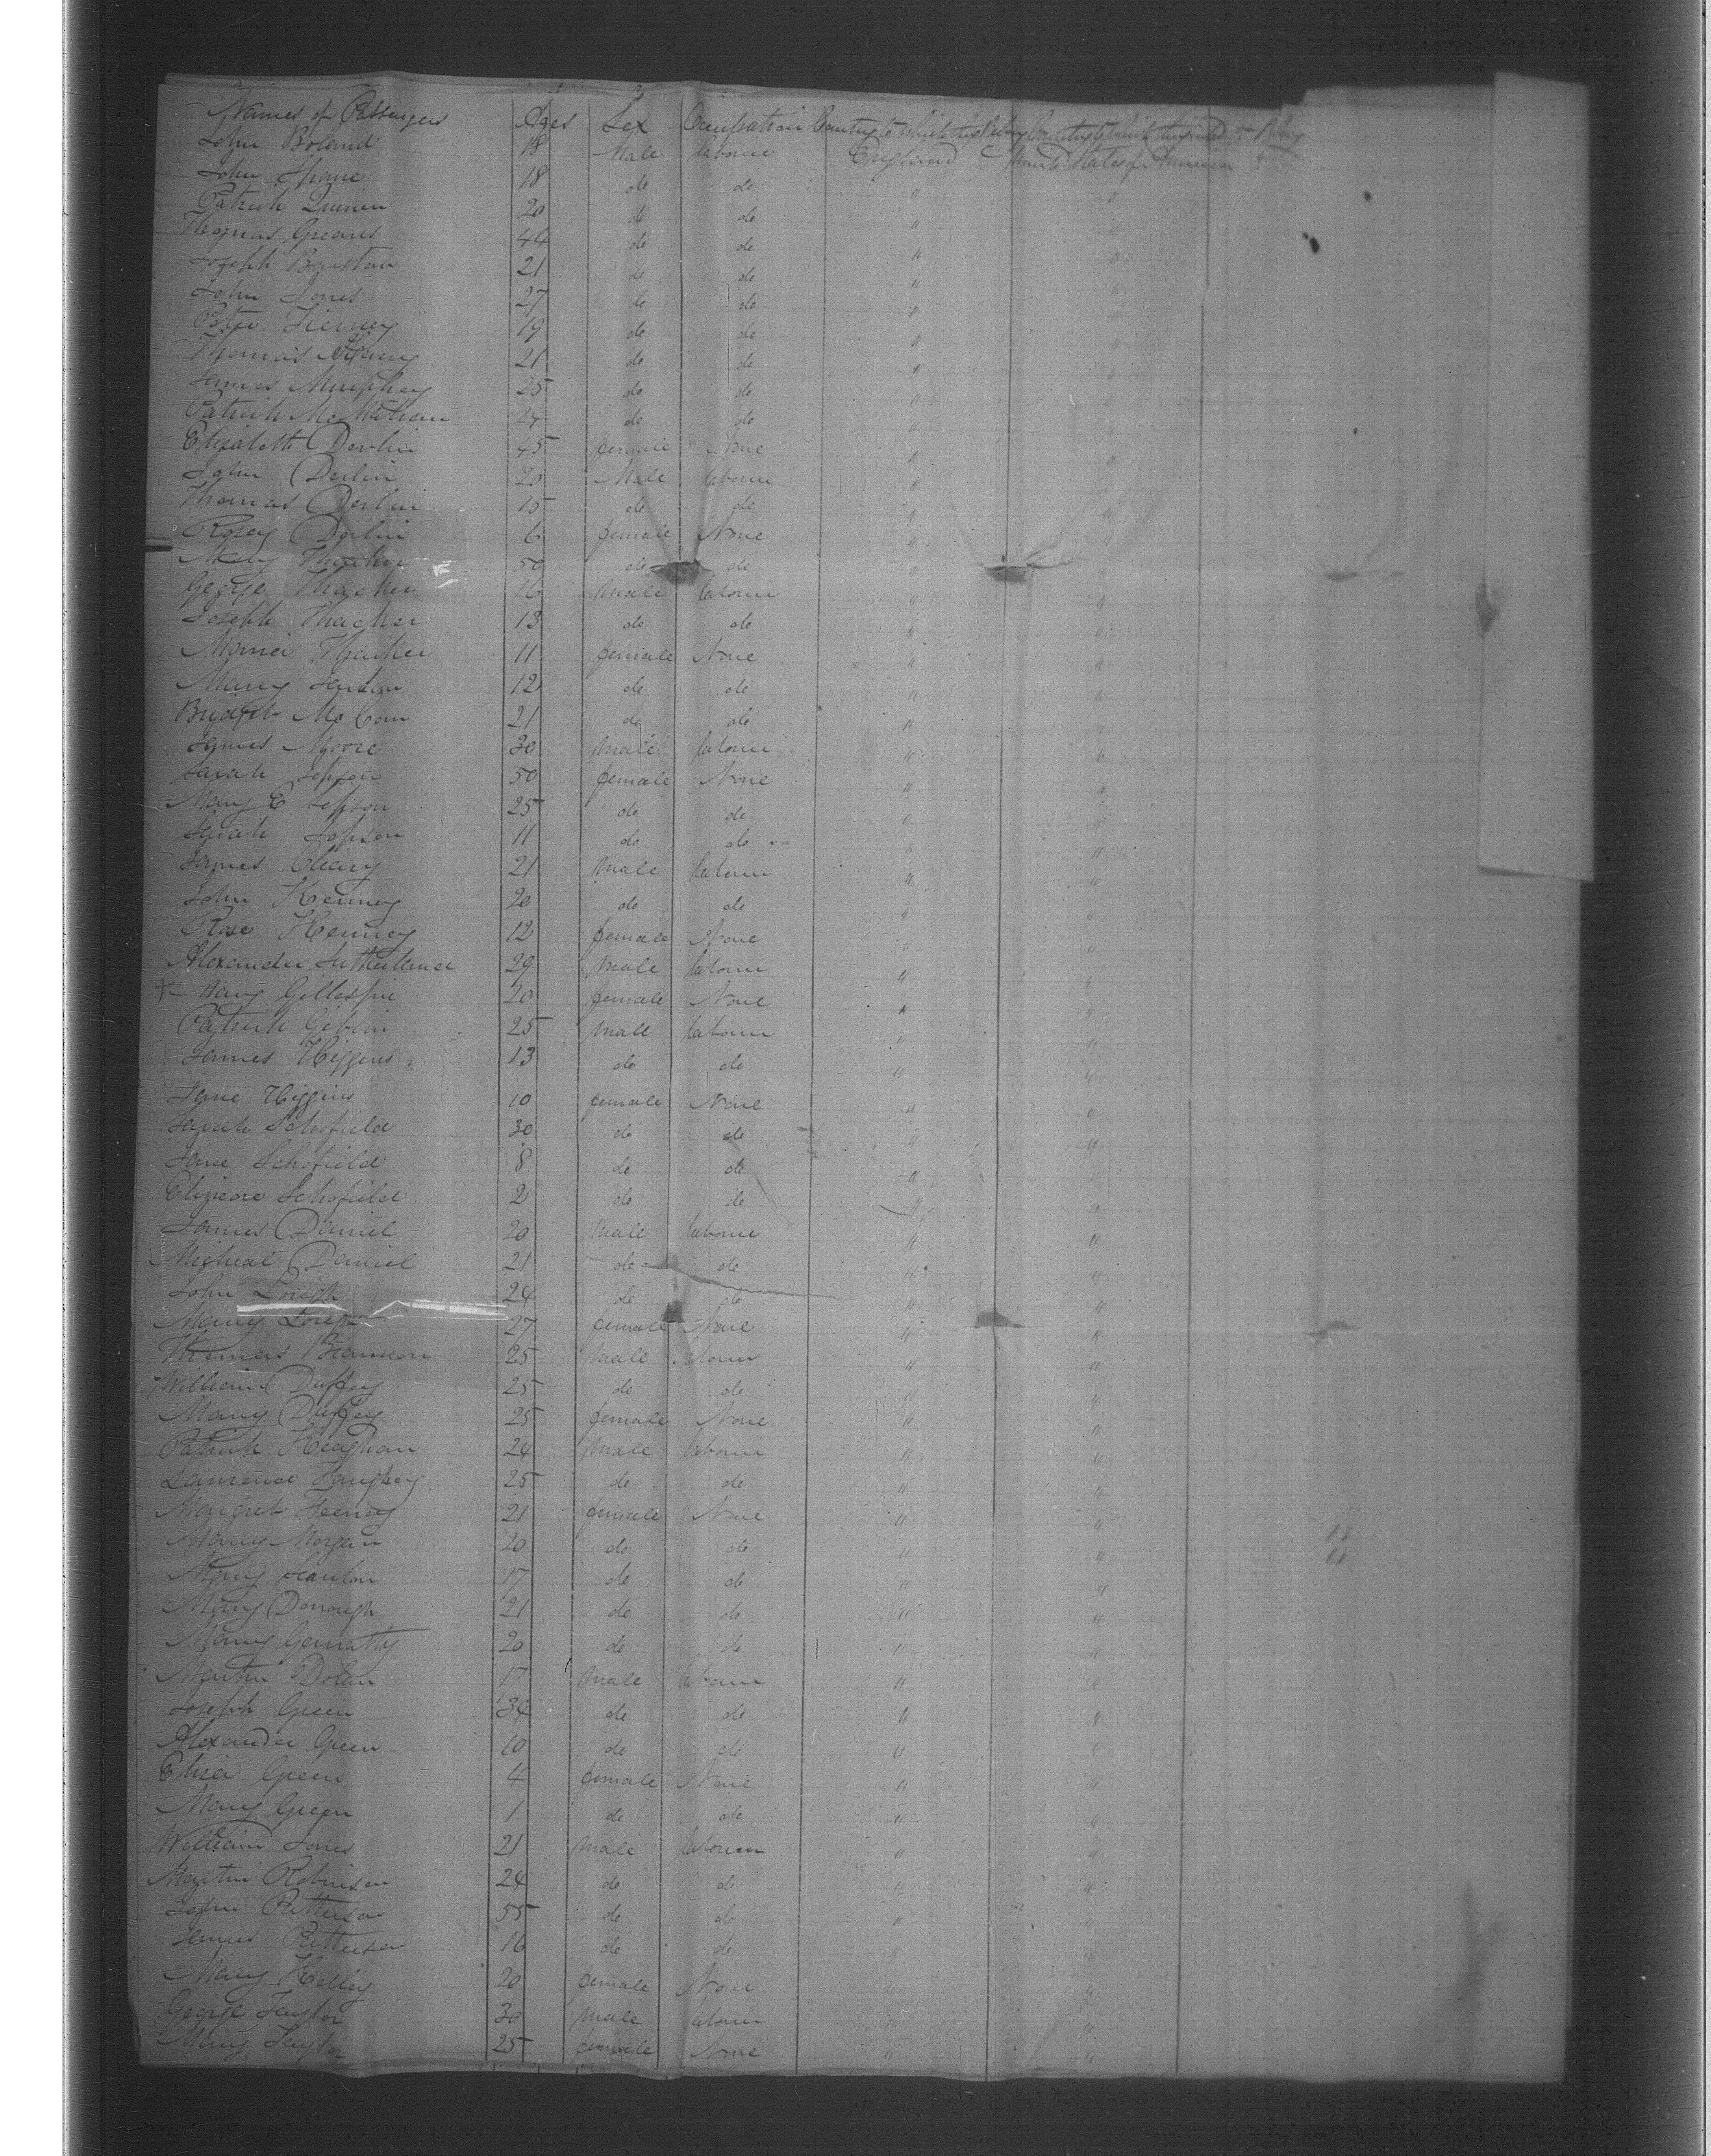 Names of Passengers Ages Sex Occupation Country to which they Belong Country to which they intend to Belong
John Boland 18 Male labourer England United States of America
John Shane 18 do do " "
Patrick Quinn 20 do do " "
Thomas Greaves 44 do do " "
Joseph Barstow 21 do do " "
John Jones 27 do do " "
Peter Tierney 19 do do " "
Thomas 21 do do " "
James Murphey 25 do do " "
Patrick McMahon 24 do do " "
Elizabeth Devlin 45 female None " "
John Devlin 20 Male labourer " "
Thomas Devlin 15 do do " "
Rosey Devlin 6 female None " "
Mary Thacker 50 do do " "
George Thacker 16 Male labourer " "
Joseph Thacker 13 do do " "
Thacker 11 female None " "
Mary 12 do do " "
Bridget McCan 21 do do " "
James Moore 30 Male labourer " "
Sarah Jepson 50 female None " "
Mary E Jepson 25 do do " "
Sarah Jepson 11 do do " "
James Cleary 21 Male labourer " "
John Kenney 20 do do " "
Rose Kenney 12 female None " "
Alexander Sutherland 29 Male labourer " "
Mary Gillespie 20 female None " "
Patrick Giblin 25 Male labourer " "
James Higgins 13 do do " "
Jane Higgins 10 female None " "
Sarah Schofield 30 do do " "
Jane Schofield 8 do do " "
Schofield 2 do do " "
James Daniel 20 Male labourer " "
Micheal Daniel 21 do do " "
John 24 do do " "
Mary 27 female None " "
Thomas Brannon 25 Male labourer " "
William Duffey 25 do do " "
Mary Duffey 25 female None " "
Patrick Heaghan 24 Male labourer " "
Lawrence Haughey 25 do do " "
Margret Feeney 21 female None " "
Mary Morgan 20 do do " "
Mary Scanlon 17 do do " "
Mary Donough 21 do do " "
Mary Garratty 20 do do " "
Martin Dolan 17 Male labourer " "
Joseph Green 34 do do " "
Alexander Green 10 do do " "
Eliza Green 4 female None " "
Mary Green 1 do do " "
William Jones 21 Male labourer " "
Martin Robinson 24 do do " "
John Patterson 55 do do " "
James Patterson 16 do do " "
Mary Kelley 20 female None " "
George Taylor 30 Male labourer " "
Mary Taylor 25 female None " "